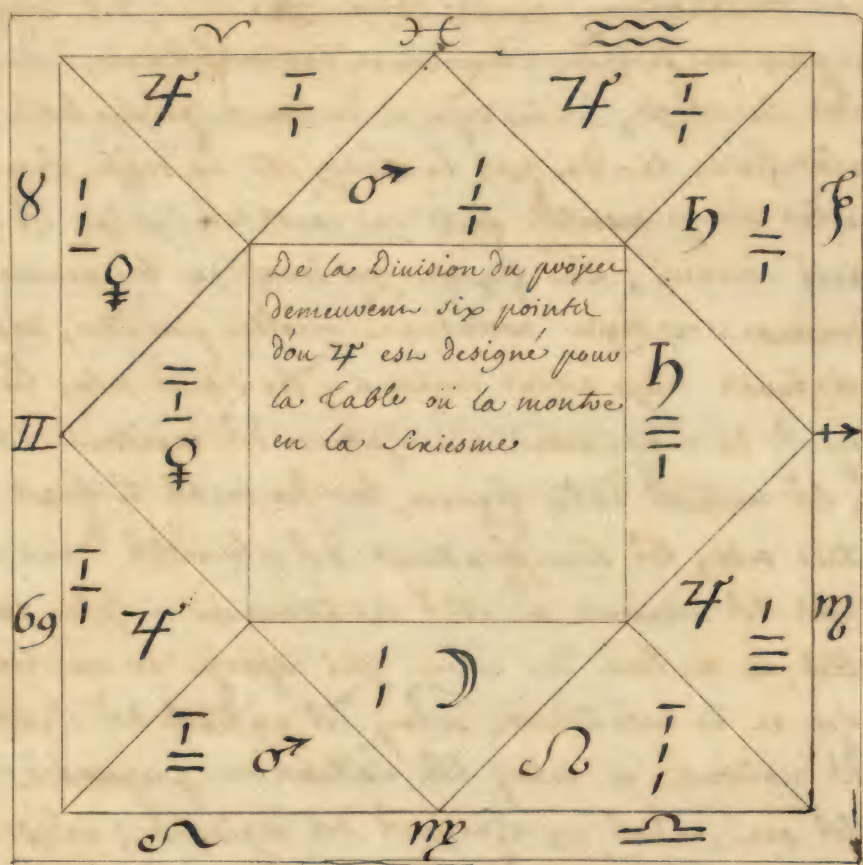 ♈ ♓ ♒
♃ ♃
♂
♉ ♄ ♑
♀
De la Division du project
demeurent six pointz
d'ou ♃ est designé pour
la table où la montre
en la sixiesme
♄
♊ ♐
♀
♃
♋ ♃ ♏
☽
♂ ☊
♌ ♍ ♎